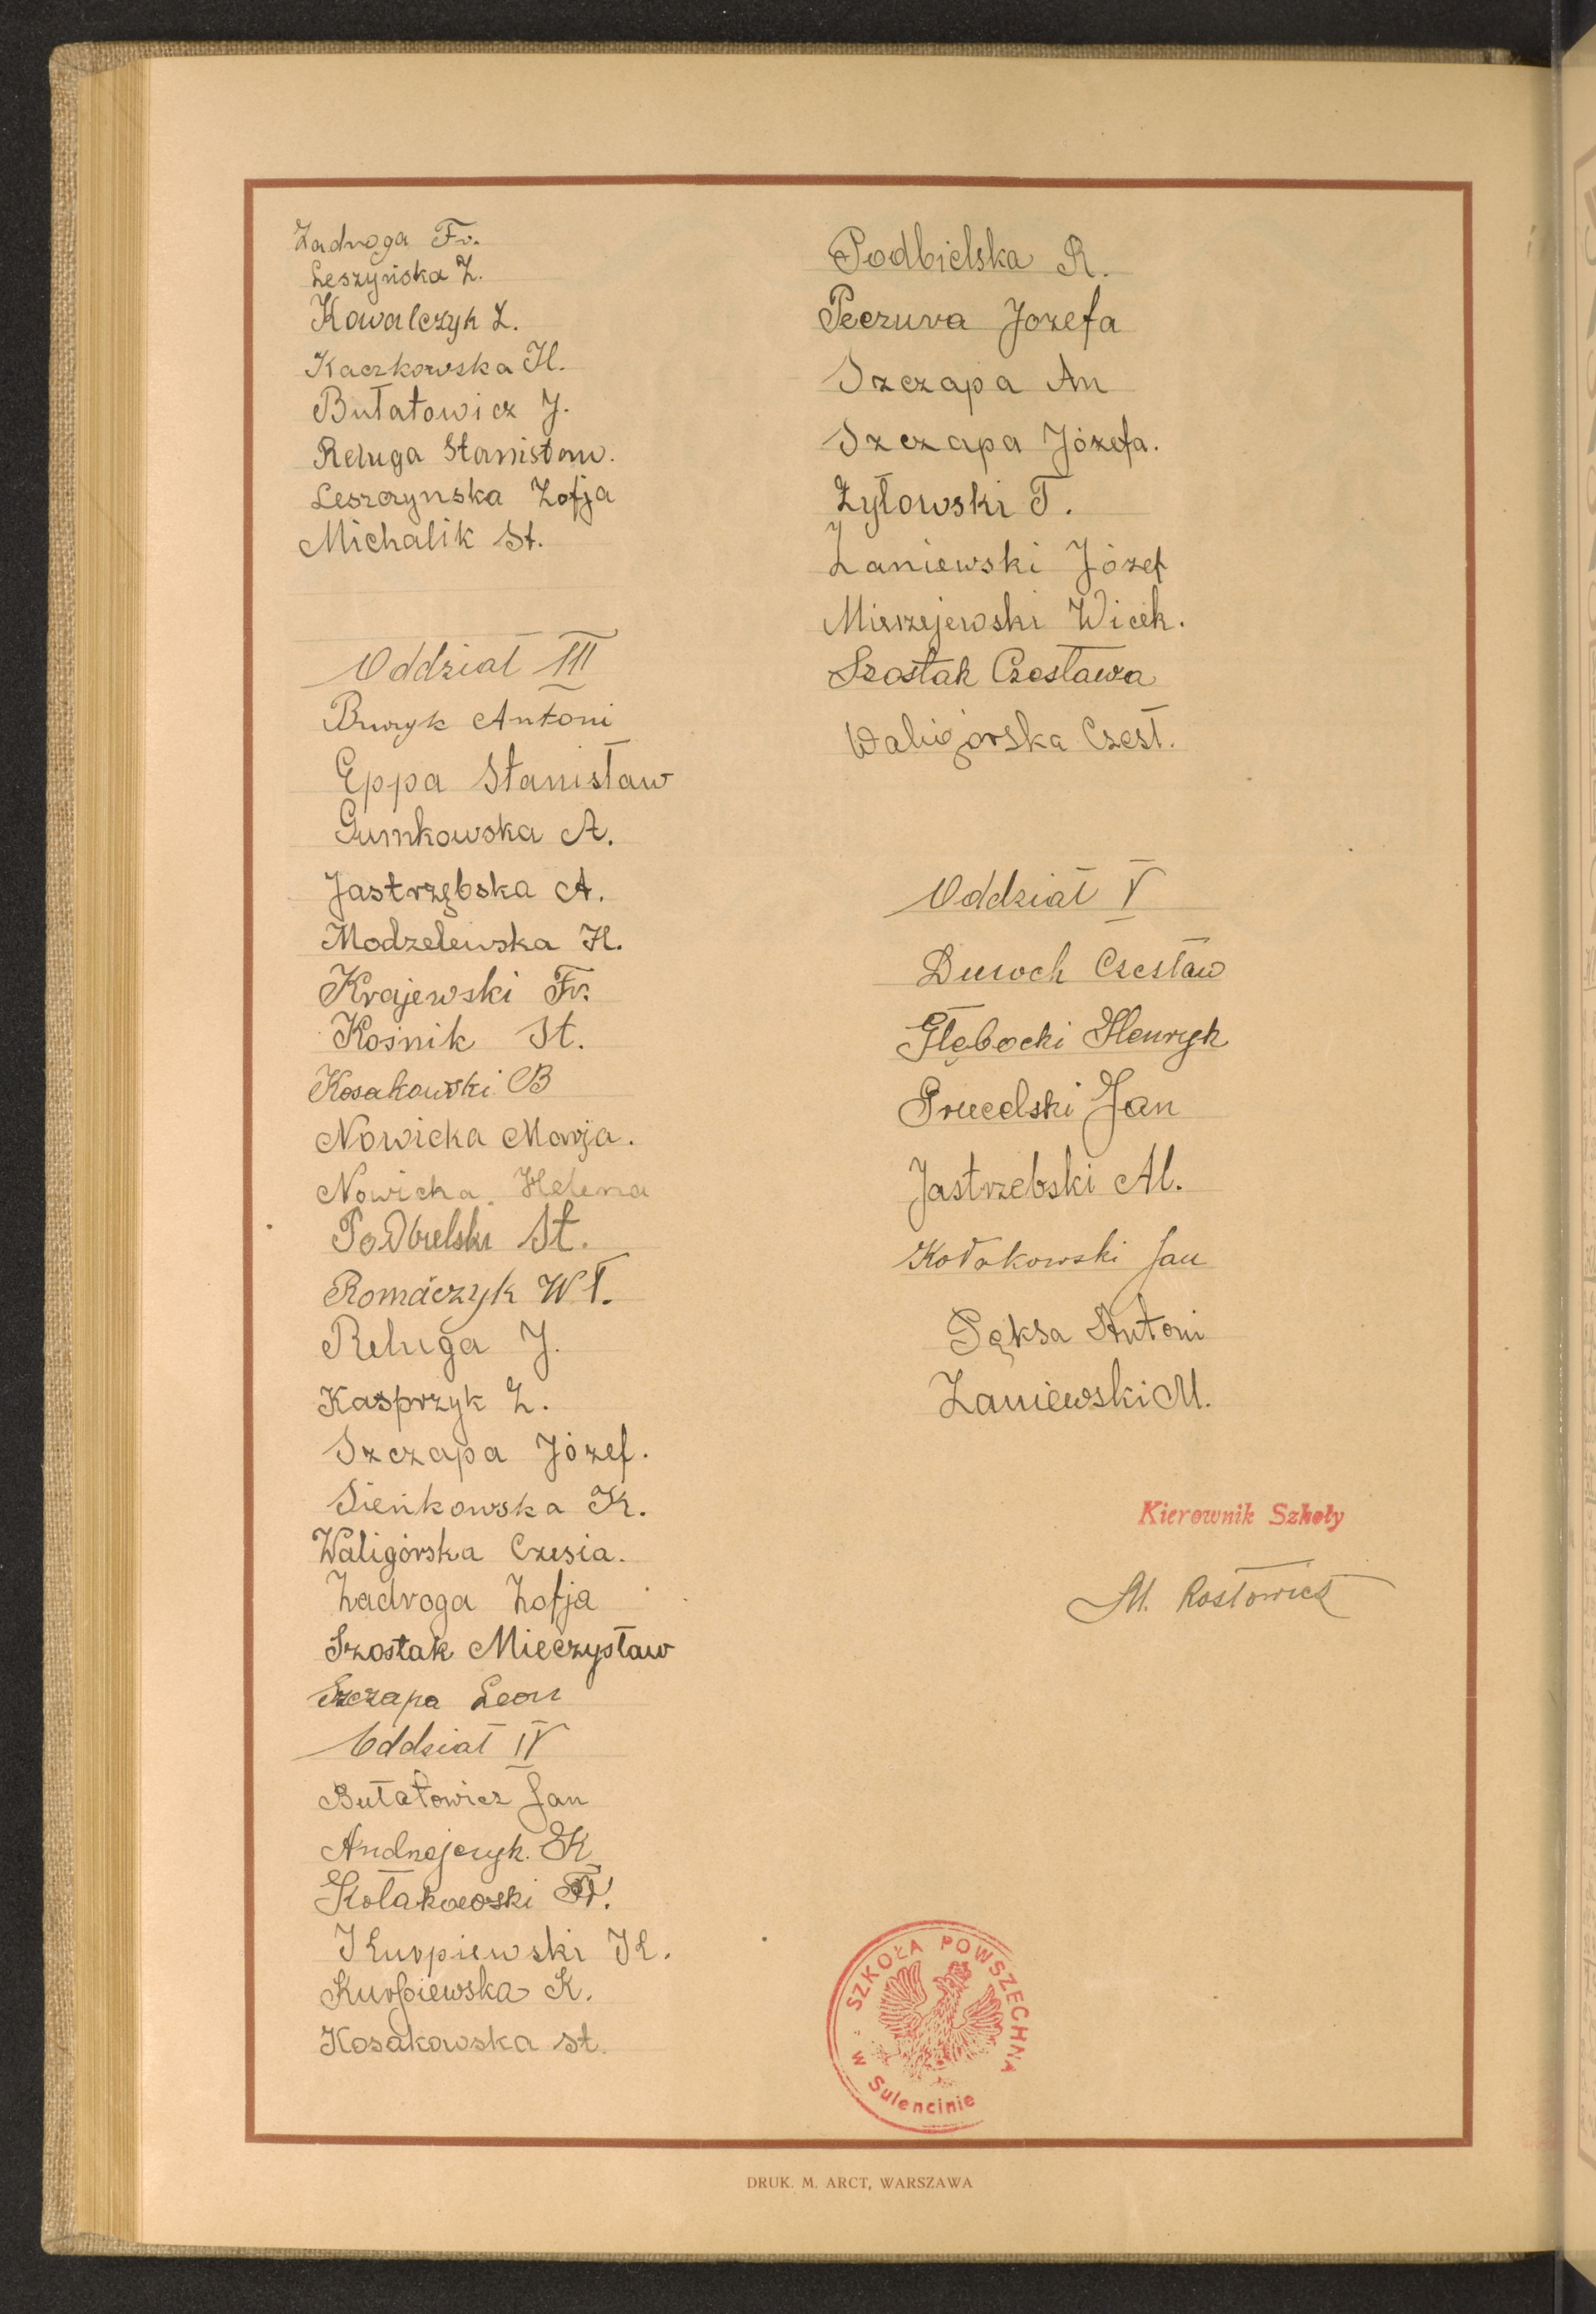 Zadroga Fr.
Leszyńska Z.
Kowalczyk Z.
Kaczkowska H.
Bułatowicz J.
Reluga Stanisław.
Leszczynska Zofja
Michalik St.
Oddział III
Buryk Antoni
Eppa Stanisław
Gumkowska A.
Jastrzębska A.
Modzelewska H.
Krajewski Fr.
Kośnik St.
Kosakowski B
Nowicka Marja.
Nowicka Helena
Podbielski St.
Romáczyk Wł.
Reluga J.
Kasprzyk Z.
Szczapa Józef.
Sieńkowska K.
Waligórska Czesia.
Zadroga Zofja
Szostak Mieczysław
Szczapa Leon
Oddział IV
Bułatowicz Jan
Andrzejczyk. K
Kołakowski Fr.
Kurpiewski K.
Kurpiewska K.
Kosakowska st.
Podbielska R.
Peczura Jozefa
Szczapa An
Szczapa Józefa.
Żyłowski T.
Zaniewski Józef
Mierzejewski Wicek.
Szostak Czesława
Waligórska Czesł.
Oddział V
Duroch Czesław
Głębocki Henryk
Jan
Jastrzebski Al.
Kołakowski Jan
Pęksa Antoni
Zaniewski M.
Kierownik Szkoły
M. Rostowicz
SZKOŁA POWSZECHNA
w Sulencinie
DRUK. M. ARCT, WARSZAWA